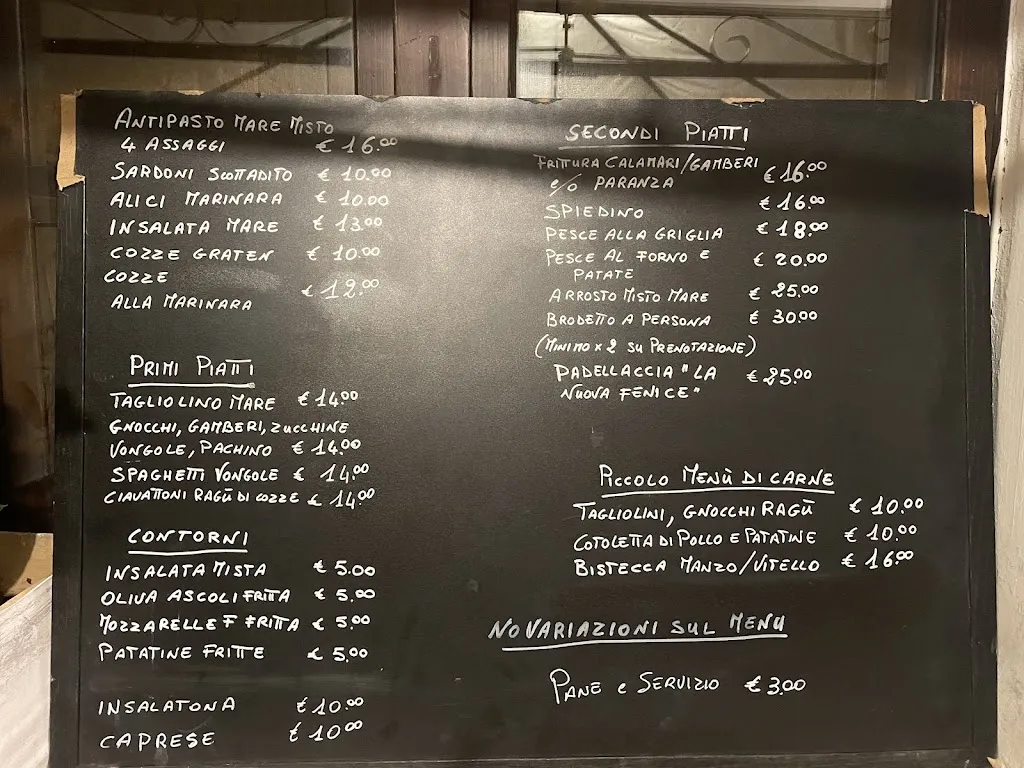 ANTIPASTO MARE MISTO
4 ASSAGGI € 16.00
SARDONI SCOTTADITO € 10.00
ALICI MARINARA € 10.00
INSALATA MARE € 13.00
COZZE GRATEN € 10.00
COZZE
ALLA MARINARA € 12.00
PRIMI PIATTI
TAGLIOLINO MARE € 14.00
GNOCCHI, GAMBERI, ZUCCHINE
VONGOLE, PACHINO € 14.00
SPAGHETTI VONGOLE € 14.00
CIAVATTONI RAGÙ DI COZZE € 14.00
CONTORNI
INSALATA MISTA € 5.00
OLIVA ASCOLI FRITTA € 5.00
MOZZARELLE F FRITTA € 5.00
PATATINE FRITTE € 5.00
INSALATONA € 10.00
CAPRESE € 10.00
SECONDI PIATTI
FRITTURA CALAMARI/GAMBERI
e/o PARANZA € 16.00
SPIEDINO € 16.00
PESCE ALLA GRIGLIA € 18.00
PESCE AL FORNO E € 20.00
PATATE
ARROSTO MISTO MARE € 25.00
BRODETTO A PERSONA € 30.00
(MINIMO x 2 SU PRENOTAZIONE)
PADELLACCIA "LA € 25.00
NUOVA FENICE"
PICCOLO MENÙ DI CARNE
TAGLIOLINI, GNOCCHI RAGÙ € 10.00
COTOLETTA DI POLLO E PATATINE € 10.00
BISTECCA MANZO/VITELLO € 16.00
NO VARIAZIONI SUL MENU
PANE e SERVIZIO € 3.00